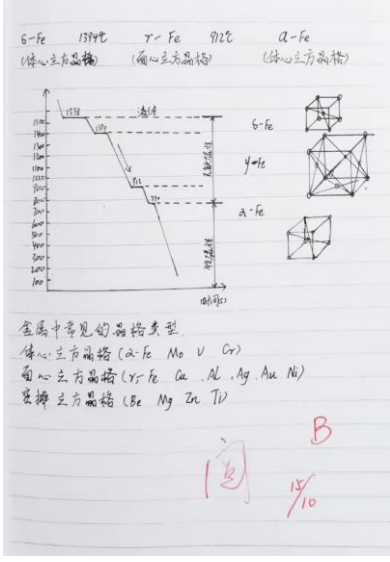 δ-Fe 1394℃ r-Fe 912℃ α-Fe
(体心立方晶格) (面心立方晶格) (体心立方晶格)
1538
1500
1400
1394
1300
1200
1100
1000
912
900
800
770
700
600
500
400
300
200
100
时间(s)
δ-Fe
γ-Fe
α-Fe
金属中常见的晶格类型
体心立方晶格(α-Fe Mo V Cr)
面心立方晶格(r-Fe Ca Al Ag Au Ni)
立方晶格(Be Mg Zn Ti)
B
阅
15/10